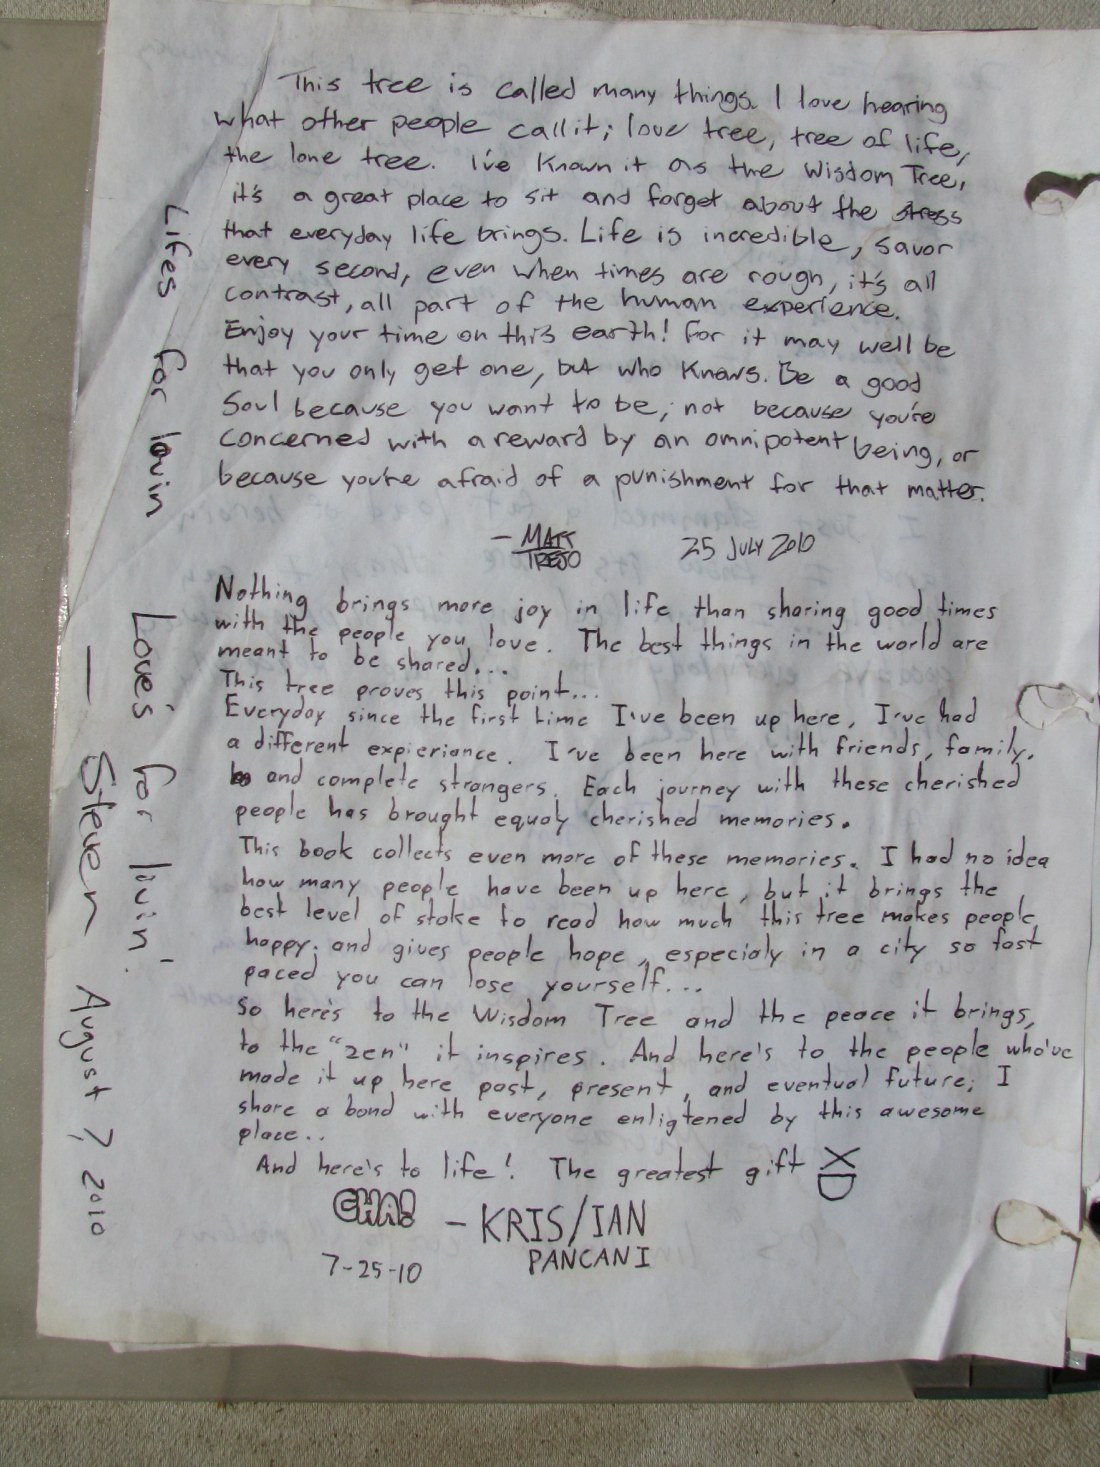 This tree is called many things. I love hearing
what other people call it; love tree, tree of life,
the lone tree. I've known it as the Wisdom Tree,
it's a great place to sit and forget about the stress
that everyday life brings. Life is incredible, savor
every second, even when times are rough, it's all
contrast, all part of the human experience.
Enjoy your time on this earth! For it may well be
that you only get one, but who knows. Be a good
Soul because you want to be, not because you're
concerned with a reward by an omnipotent being, or
because you're afraid of a punishment for that matter.
- MATT
TREJO
25 JULY 2010
Nothing brings more joy in life than sharing good times
with the people you love. The best things in the world are
meant to be shared...
This tree proves this point...
Everyday since the first time I've been up here, I've had
a different expieriance. I've been here with friends, family,
and complete strangers. Each journey with these cherished
people has brought equaly cherished memories.
This book collects even more of these memories. I had no idea
how many people have been up here, but it brings the
best level of stoke to read how much this tree makes people
happy; and gives people hope, especialy in a city so fast
paced you can lose yourself...
So here's to the Wisdom Tree and the peace it brings,
to the "zen" it inspires. And here's to the people who've
made it up here past, present, and eventual future; I
share a bond with everyone enligtened by this awesome
place..
And here's to life! The greatest gift XD
CHA!
- KRIS/IAN
PANCANI
7-25-10
Lifes for lovin
Love's for livin'.
— Steven August 7, 2010